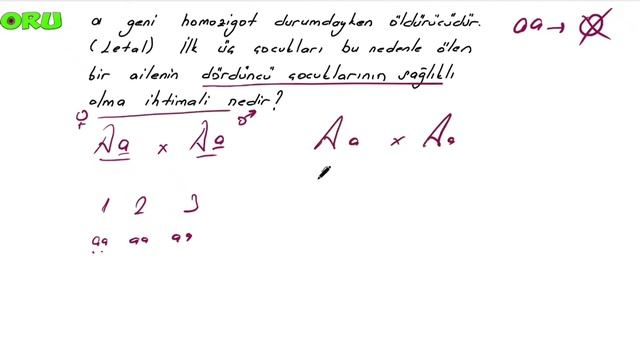 ORU
a geni homozigot durumdayken öldürücüdür.
(Letal) İlk üç çocukları bu nedenle ölen
bir ailenin dördüncü çocuklarının sağlıklı
olma ihtimali nedir?
aa →
♀ Aa x Aa ♂
Aa x Aa
1 2 3
aa aa aa